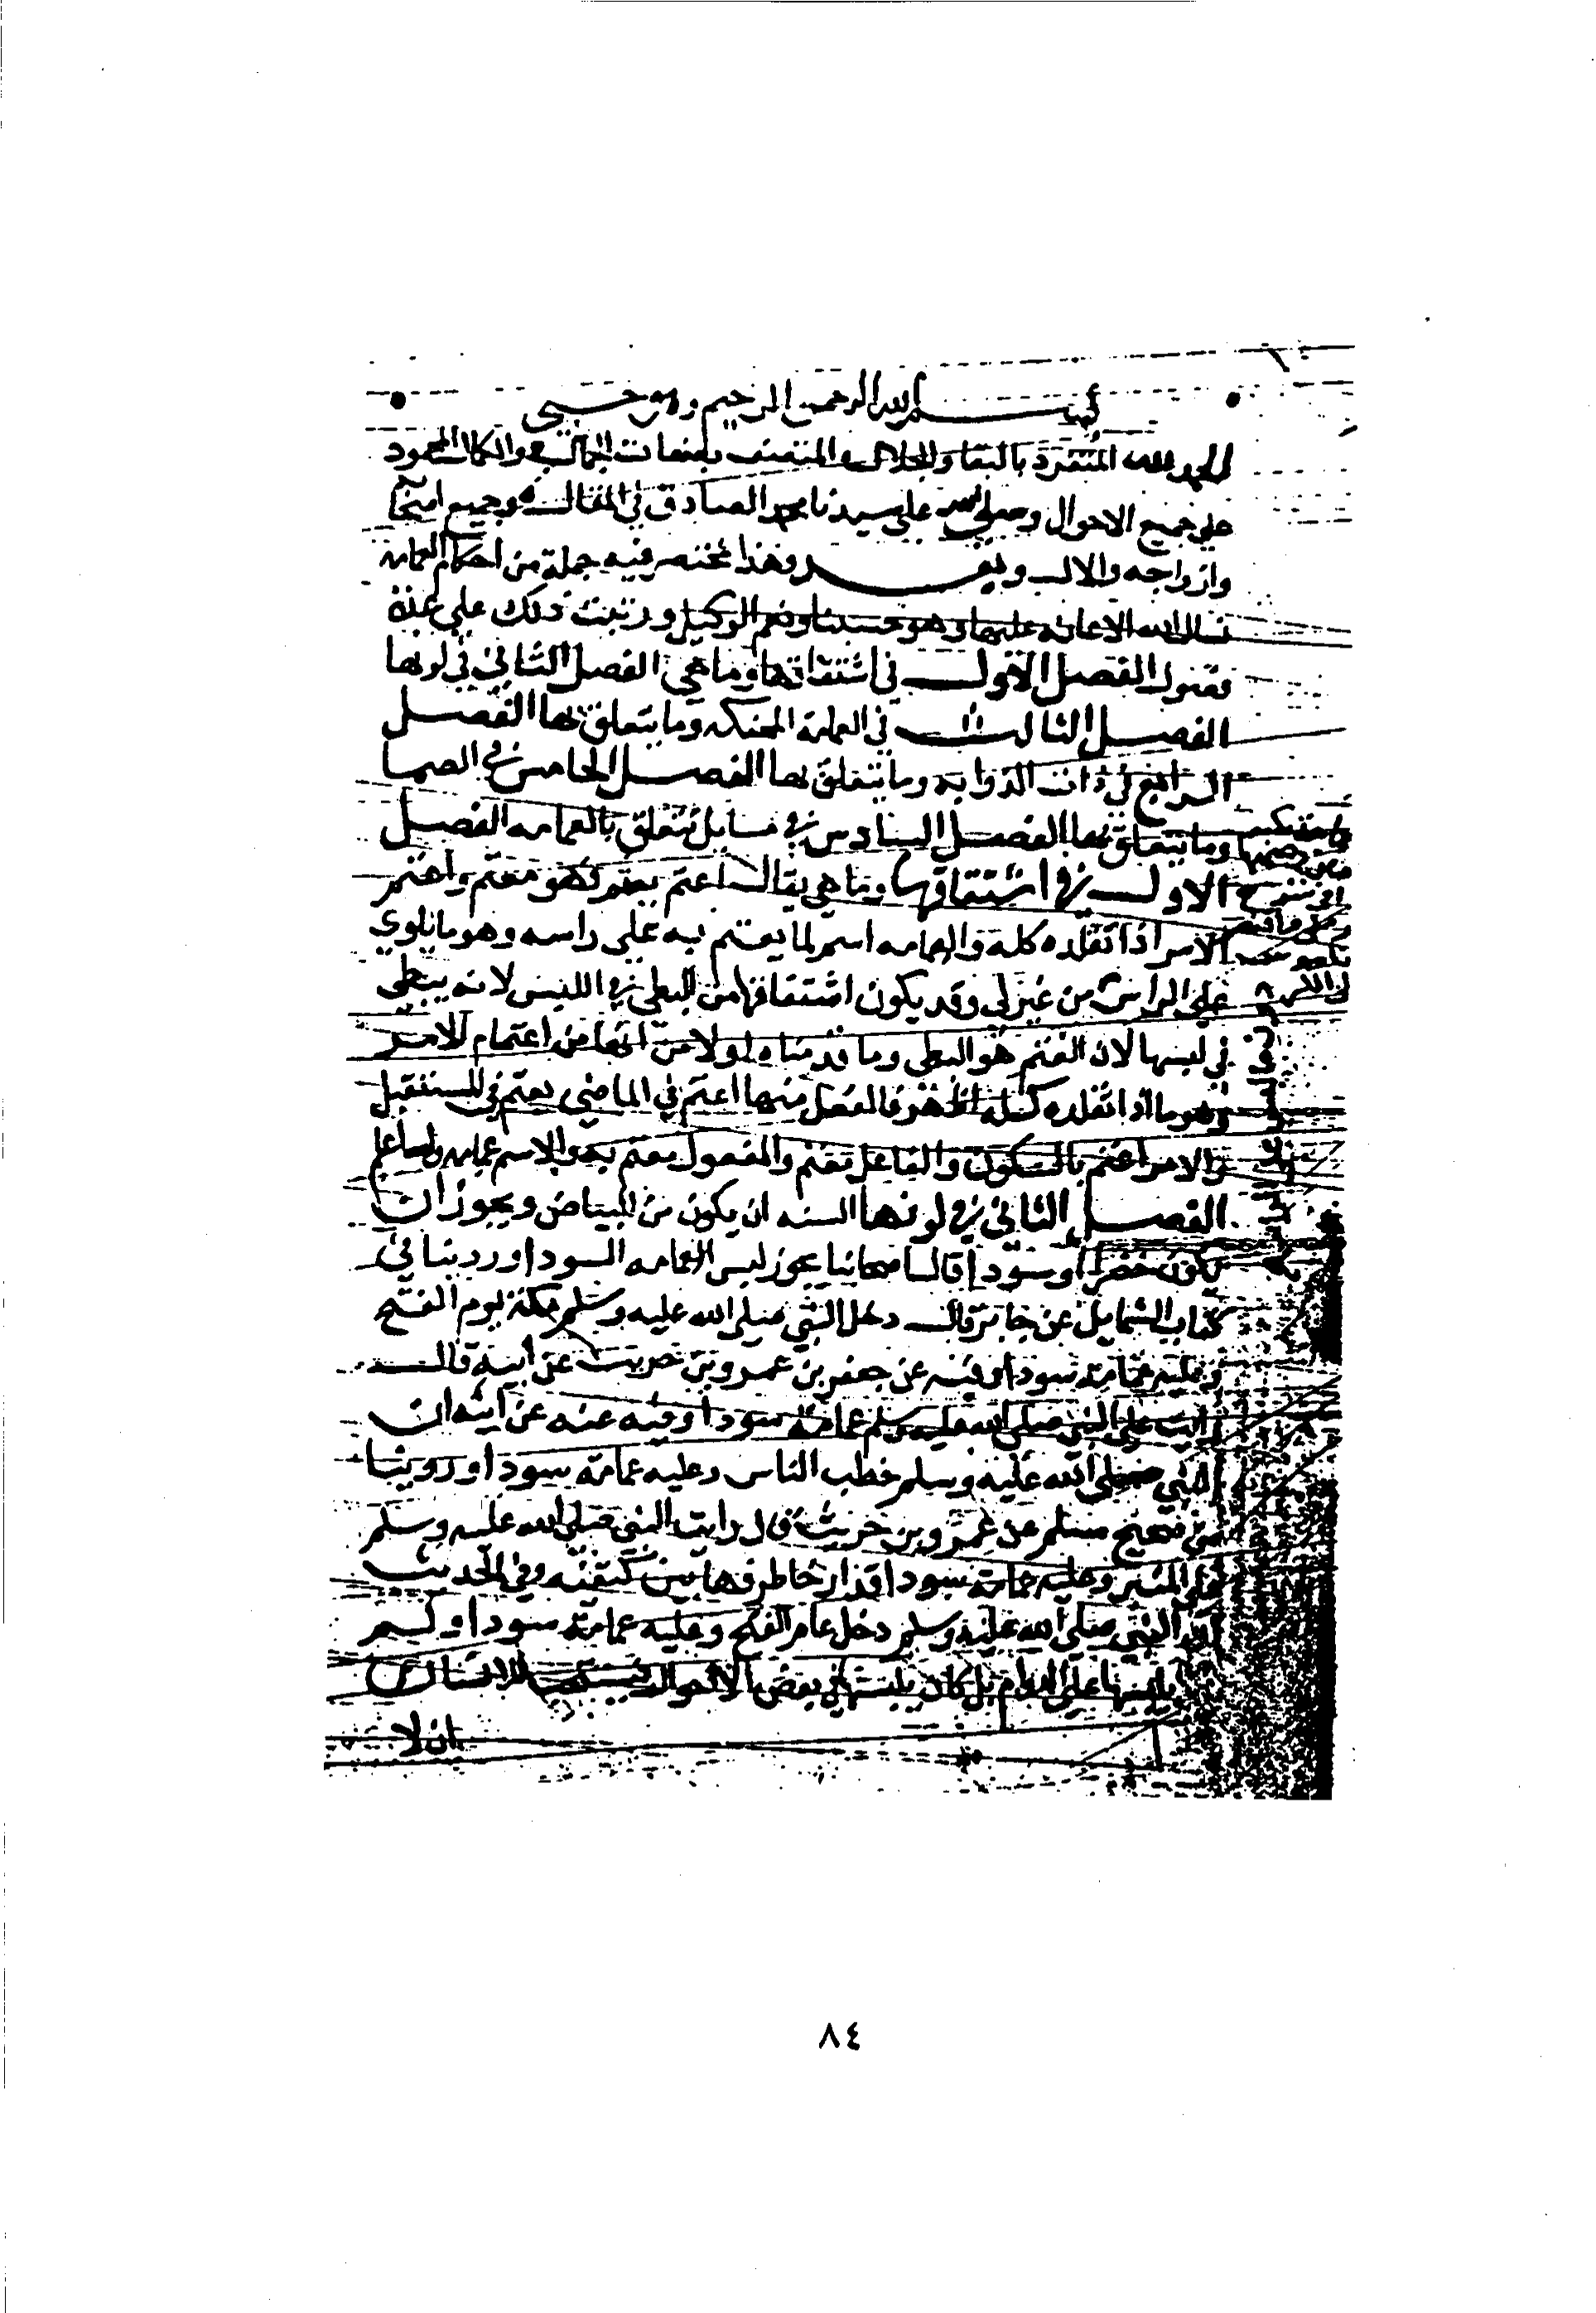 بسم الله الرحمن الرحيم وهو حسبي
الحمد لله المتفرد بالبقا والجلال والمتصف بصفات الجمال والكمال المحمود
علي جميع الاحوال وصلي الله علي سيدنا محمد الصادق في المقال وجميع اصحابه
وازواجه والال وبعد فهذا مختصر فيه جملة من احكام العمامه
نسال الله الاعانه عليها وهو حسبنا ونعم الوكيل ورتبت ذلك علي عدة
فصول الفصل الاول في اشتقاقها وما هي الفصل الثاني في لونها
الفصل الثالث في العمامة المحنكه وما يتعلق بها الفصل
الرابع في ذات الذوابه وما يتعلق بها الفصل الخامس في الصما
وما يتعلق بها الفصل السادس في مسايل تتعلق بالعمامه الفصل
الاول في اشتقاقها وما هي يقال اعتم يعتم فهو معتم واعتم
الامر اذا تقلده كله والعمامه اسم لما يعتم به علي راسه وهو ما يلوي
علي الراس من غير لي وقد يكون اشتقاقها من البطي في اللبس لانه يبطي
في لبسها لان العتم هو البطي وما قدمناه اولا من انها من اعتمام الامر
وهو ما اذا تقلده كله اظهر فالفعل منها اعتم في الماضي يعتم في المستقبل
والامر اعتم بالسكون والفاعل معتم والمفعول معتم به والاسم عمامه
الفصل الثاني في لونها السنه ان يكون من البياض ويجوز ان
تكون خضرا وسودا قال اصحابنا يجوز لبس العمامه السودا وردينا في
كتاب الشمايل عن جابر قال دخل النبي صلى الله عليه وسلم مكة يوم الفتح
وعليه عمامة سودا وفيه عن جعفر بن عمرو بن حريث عن ابيه قال
رايت علي النبي صلى الله عليه وسلم عمامة سودا وفيه عنه عن ابيه ان
النبي صلى الله عليه وسلم خطب الناس وعليه عمامة سودا وروينا
في صحيح مسلم عن عمرو بن حريث قال رايت النبي صلى الله عليه وسلم
علي المنبر وعليه عمامة سودا قد ارخا طرفها بين كتفيه وفي الحديث
ان النبي صلى الله عليه وسلم دخل عام الفتح وعليه عمامة سودا ولم
يلبسها علي الدوام بل كان يلبسها في بعض الاحوال للانسان
ان لا
٨٤